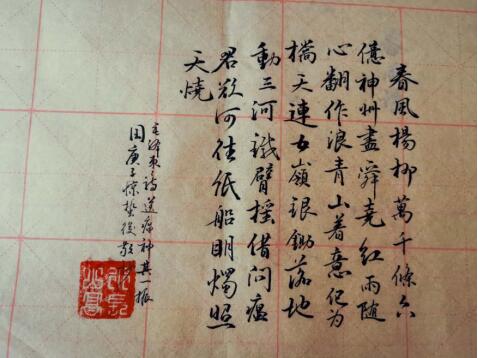 春風楊柳萬千條六
億神州盡舜堯紅雨隨
心翻作浪青山着意化為
橋天連五嶺銀鋤落地
動三河鐵臂搖借問瘟
君欲何往紙船明燭照
天燒
毛澤東詩送瘟神其一振
田庚子惊蟄後敬